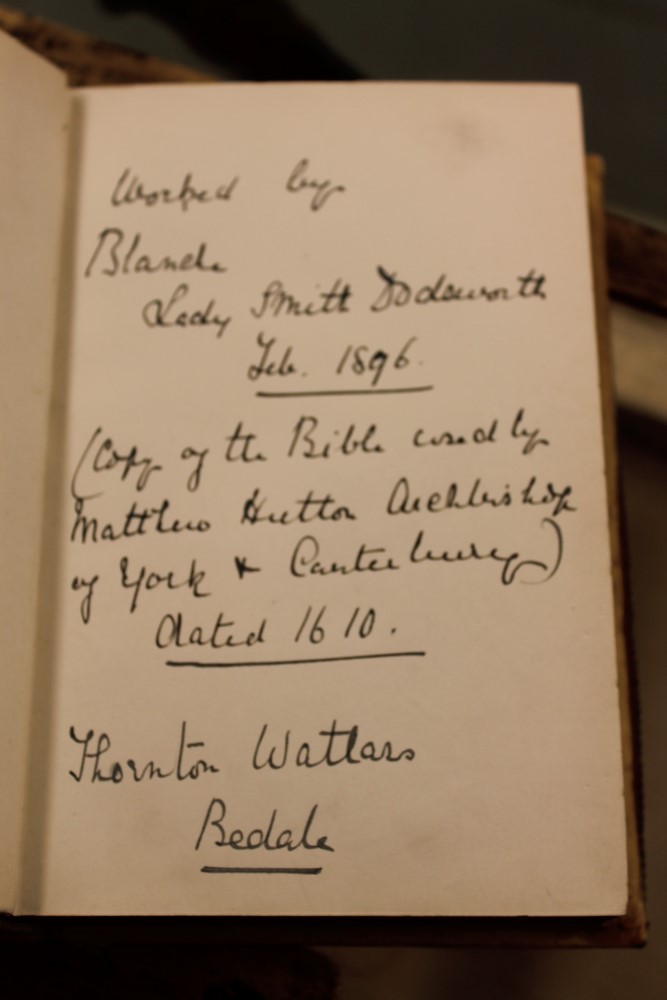 Worked by
Blanche
Lady Smith Dodsworth
Feb. 1896.
(Copy of the Bible used by
Matthew Hutton Archbishop
of York & Canterbury)
dated 1610.
Thornton Watlass
Bedale